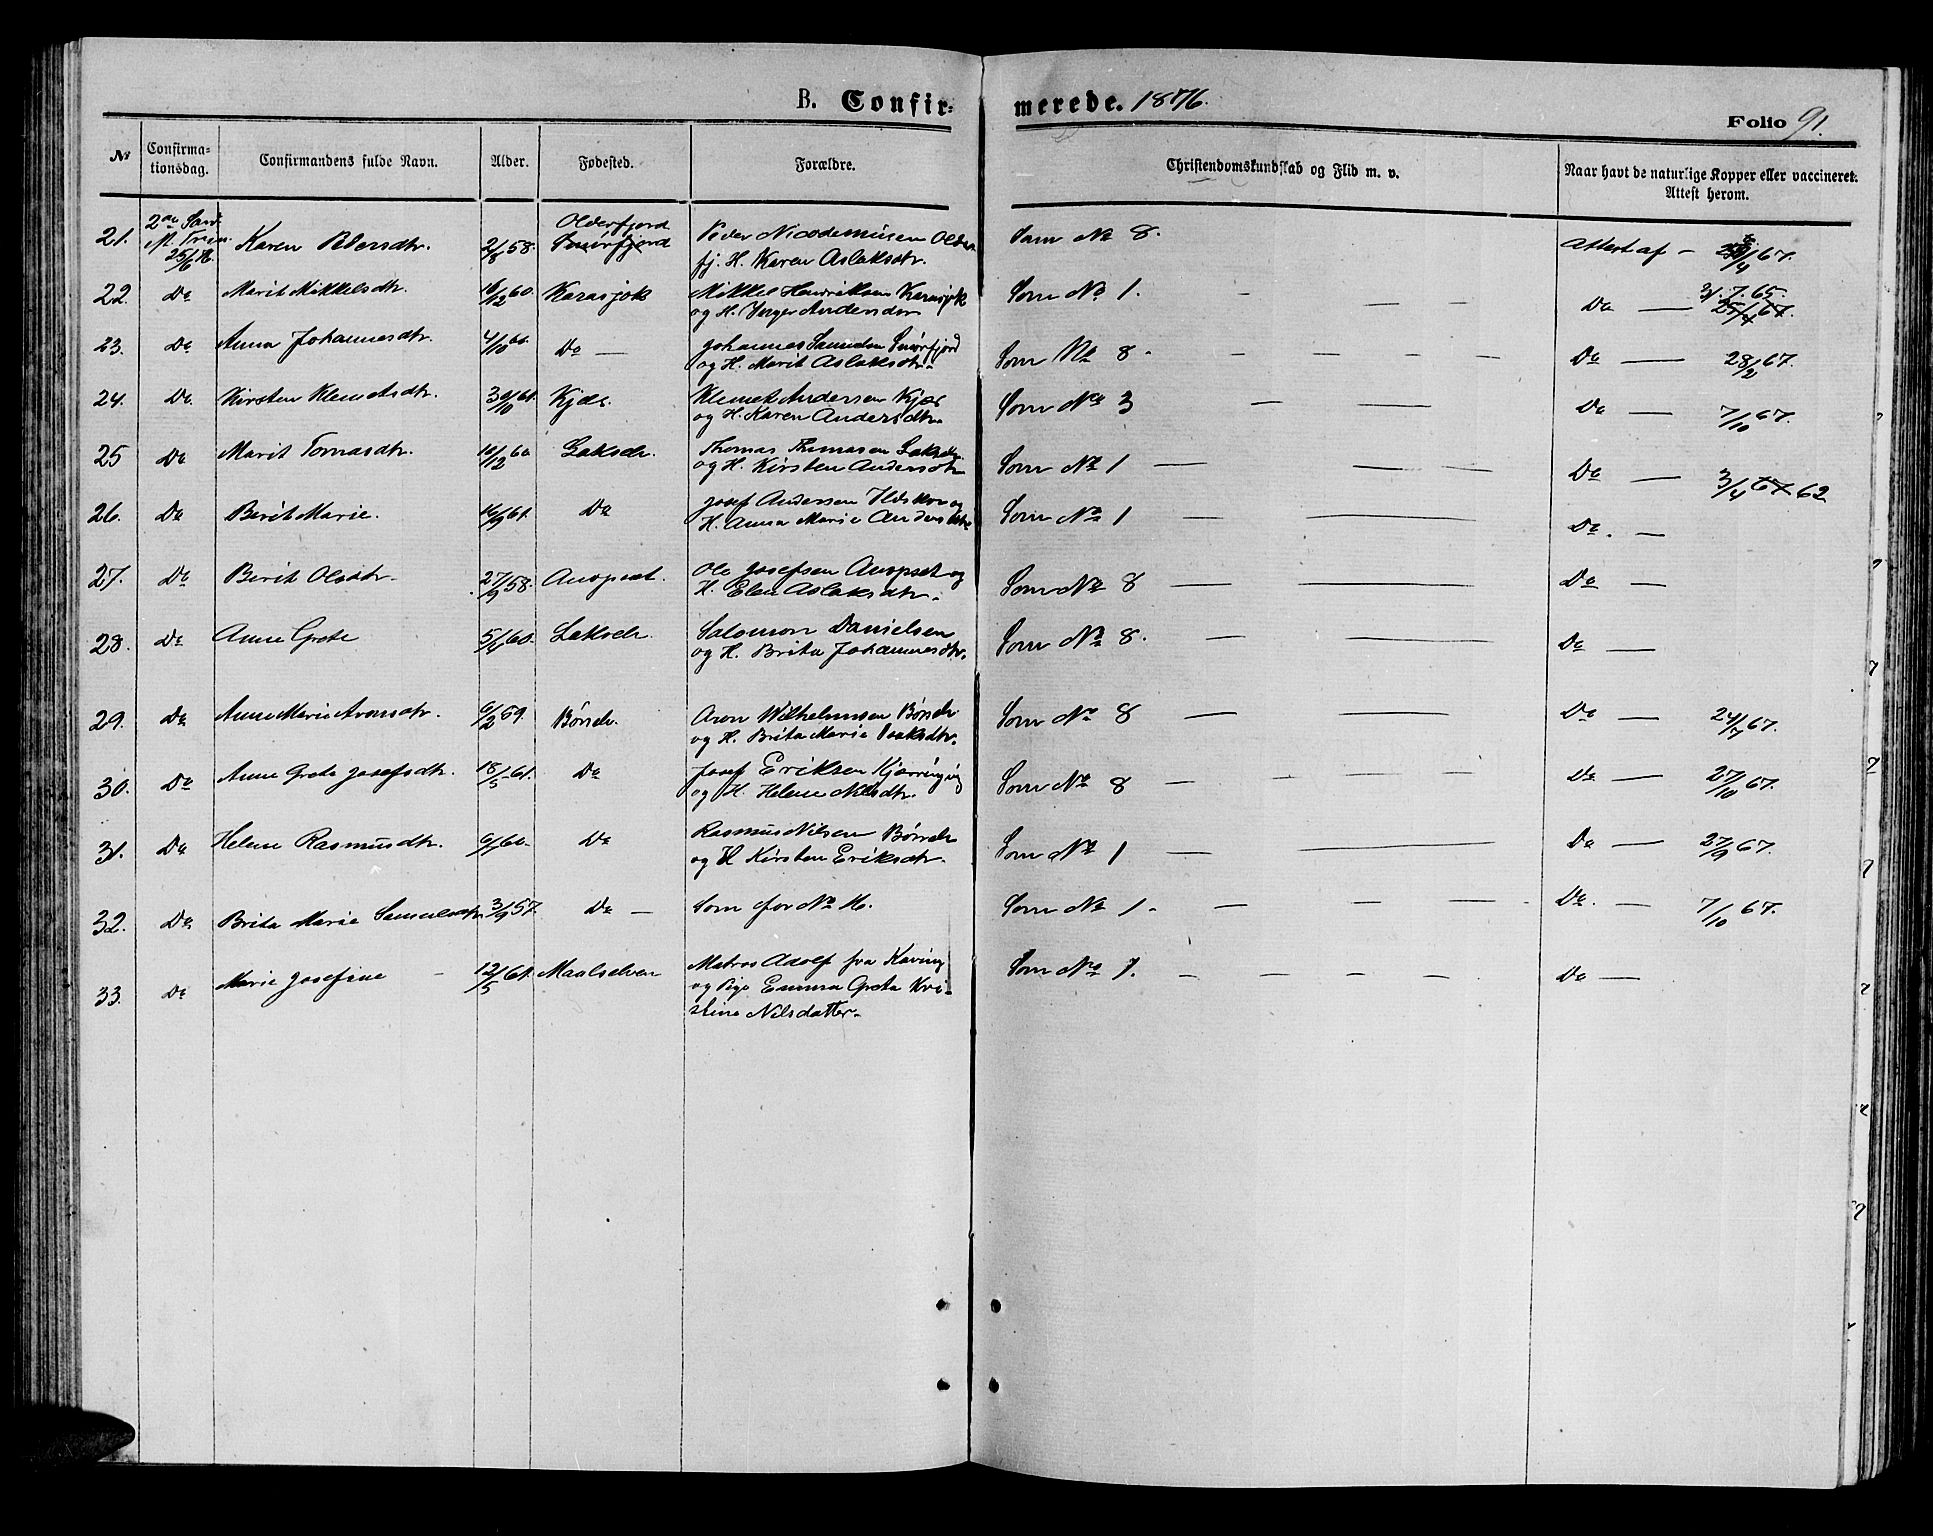 B. Confir- merede. 1876.
Folio 91.
No Confirma- tionsdag. Confirmandens fulde Navn. Alder. Fødested. Forældre. Christendomskundskab og Flid m. v. Naar havt de naturlige Kopper eller vaccineret. Attest herom.
21. 25/6 Karen Pedersdtr. 58. Olderfjord Peder Nicodemusen Older Som No 8. Attest af – /4 67.
Smørfjord fj. H. Karen Aslaksdtr.
22. Do Marit Mikkelsdtr. /12 60. Karasjok Mikkel Henriksen Karasjok Som No 1. — — — Do — 31.7.65.
og H. Inger Andersdtr 25/4 67.
23. Do Anna Johannesdtr. 4/10 60. Do — Johannes Smørfjord Som No 8. — — — — Do — 28/2 67.
og H. Marit Aslaksdtr.
24. Do Kirsten Klemetsdtr. 30/10 61. Kjæs. Klemet Andersen Kjæs Som No 3 — — Do — 7/10 67.
og H. Karen Andersdtr.
25 Do Marit Tomasdtr. 10/12 60 Lakselv. Thomas Thomasen Lakselv Som No 1 — — — Do — 3/4 67 62
og H. Kirsten Andersdtr
26. Do Berit Marie. /9 61. Do Josef Andersen og Som No 1 — — Do. —
H. Anna Marie Andersdtr
27. Do Berit Olsdtr. 27/9 58. Avopset. Ole Josefsen Avopset og Som No 8 — — Do —
H. Elen Aslaksdtr.
28. Do Anne Grete 5/ 60. Lakselv. Salomon Danielsen Som No 8. — — Do —
og H. Brita Johannesdtr.
29. Do Anne Marie Aronsdtr. 6/2 59. Børselv. Aron Wilhelmsen Børselv Som No 8 — — Do — 24/7 67.
og H. Brita Marie Isaksdtr.
30. Do Anne Grete Josefsdtr. 18/5 61. Do Josef Eriksen Kjærringvig Som No 8 — — — Do — 27/10 67.
og H. Helene Nilsdtr.
31. Do Helene Rasmusdtr. 6/ 60. Do Rasmus Nilsen Børselv Som No 1 — — Do — 27/9 67.
og H Kirsten Eriksdtr.
32. Do Brita Marie Samuelsdtr. 3/9 57. Do — Som for No 16. Som No 1. — — — Do. — 7/10 67.
33. Do Marie Josefine – 12/5 61. Maalselven Matros Adolf fra Kaving Som No 7. — — — — Do —
og Pige Emma Greta Kri-
stine Nilsdatter.